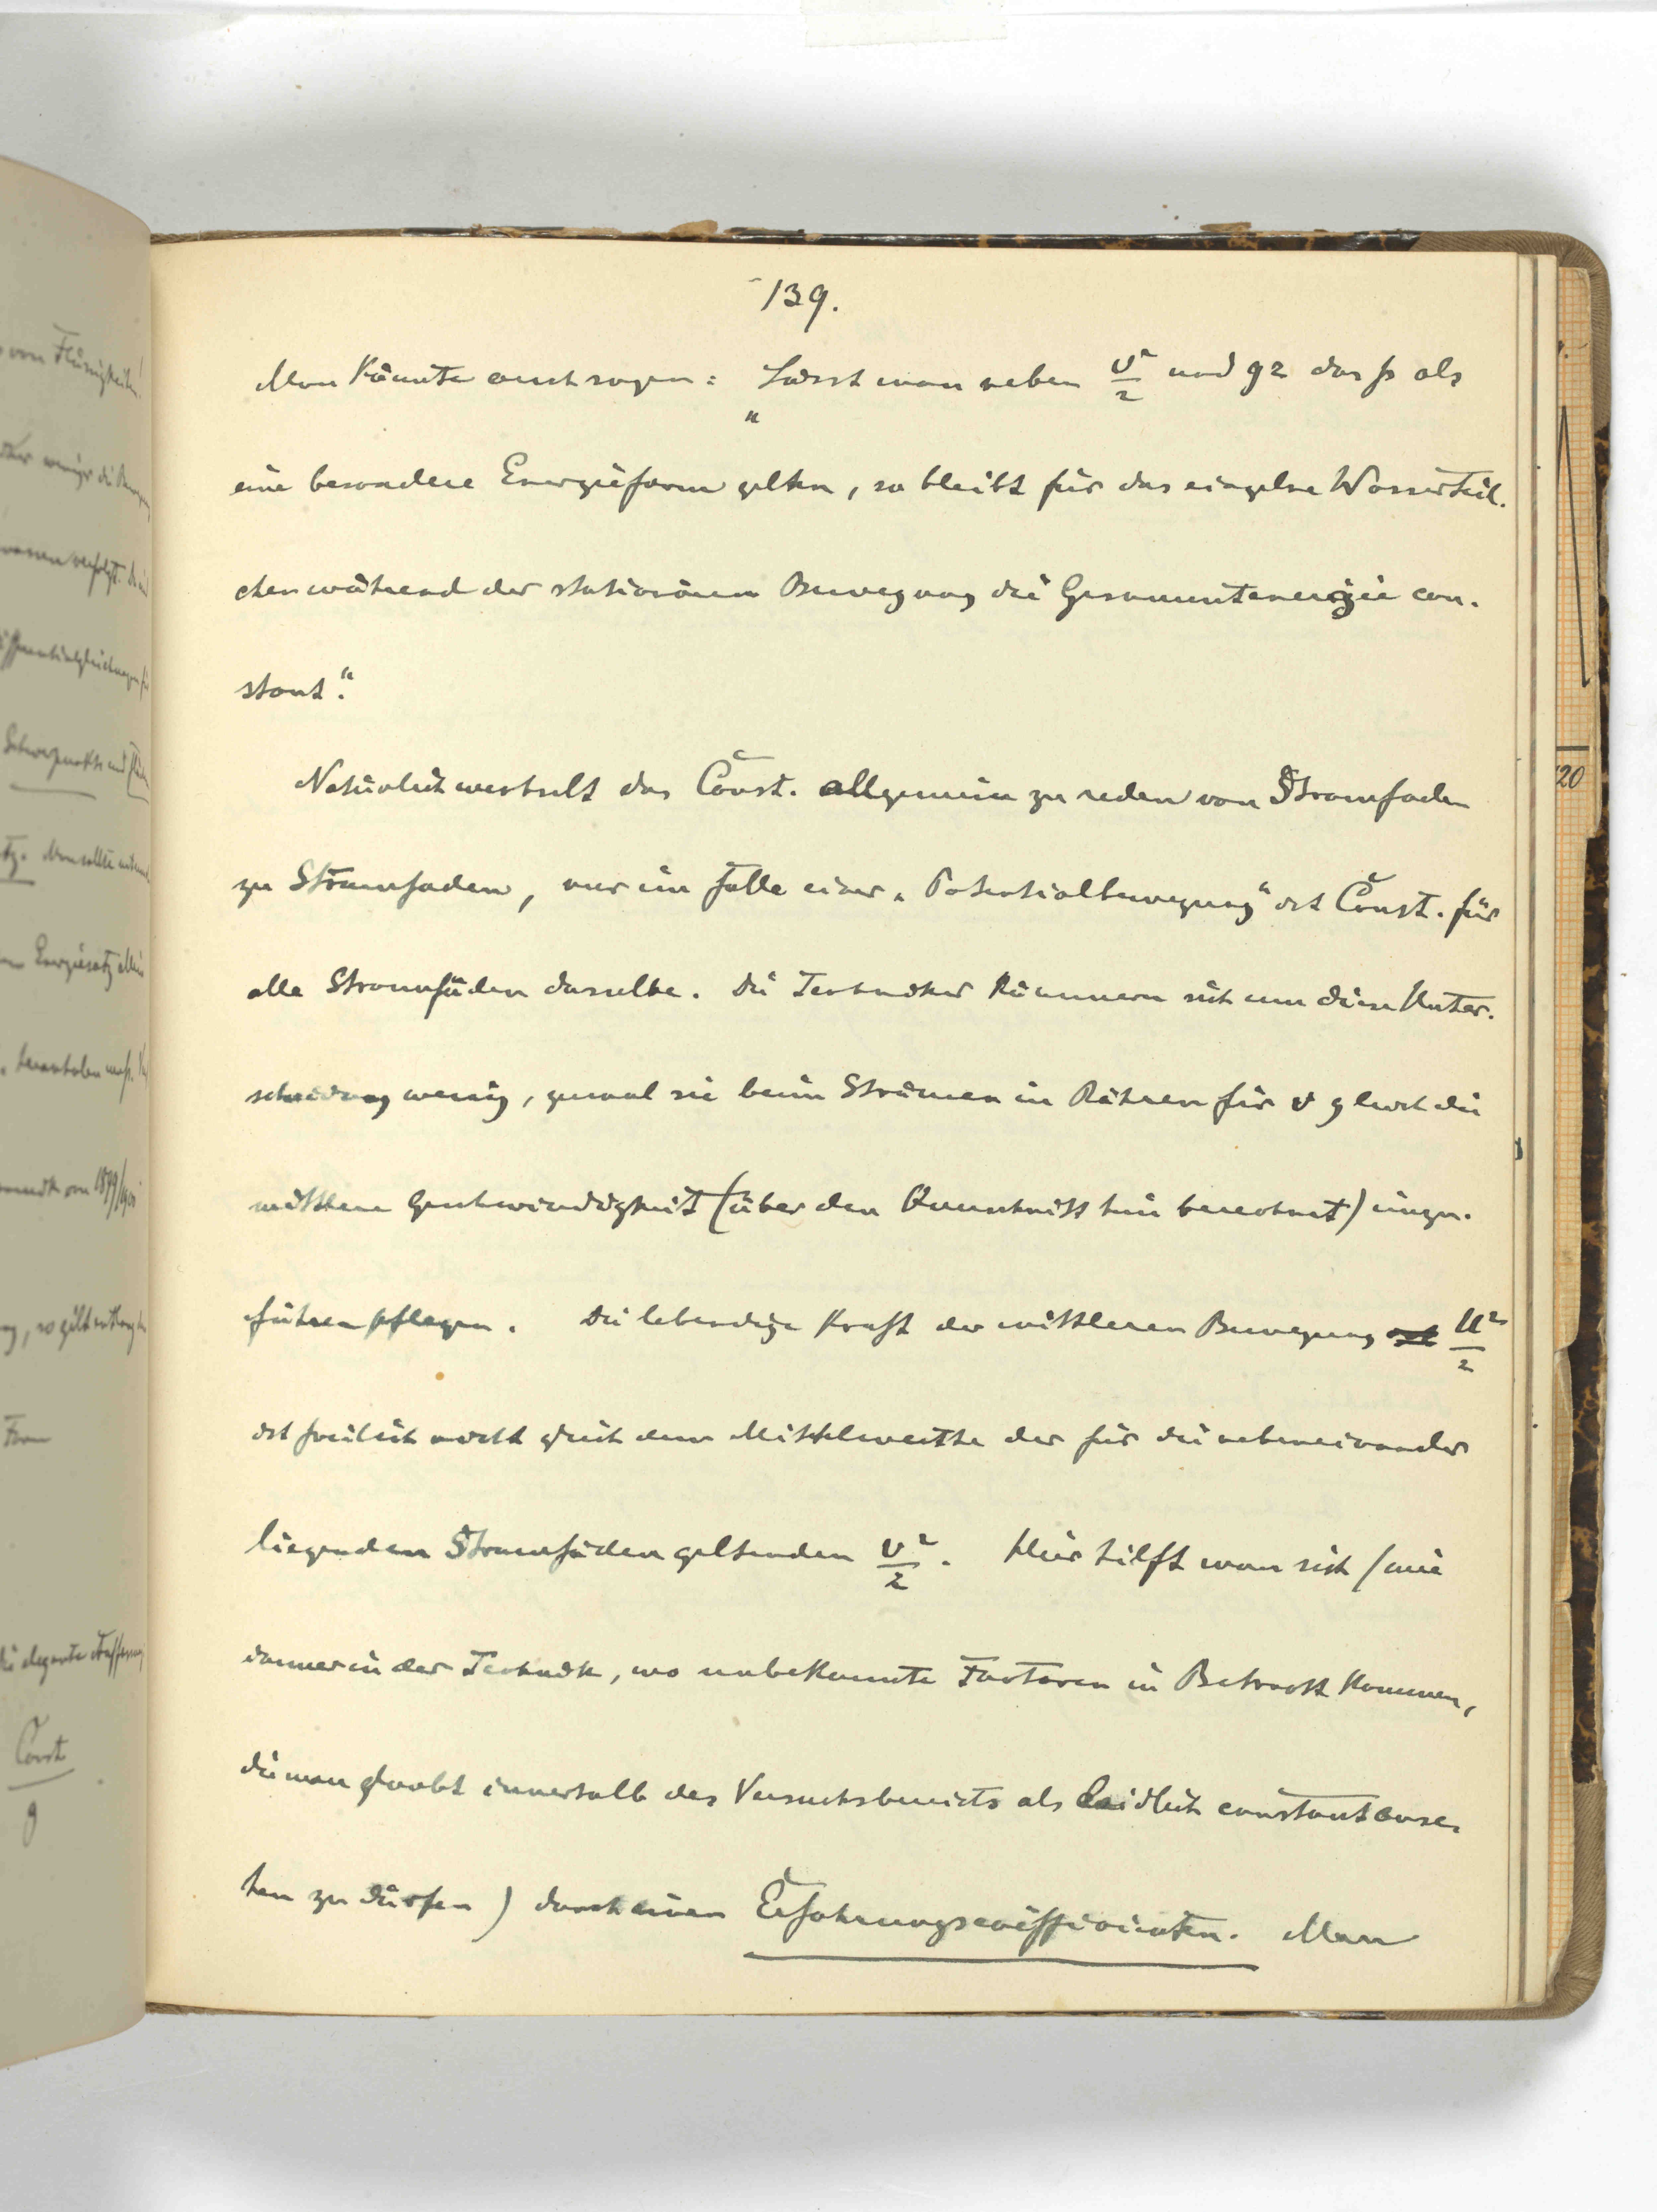 139.
Man könnte auch sagen: „Lässt man neben v²/2 und gz das p als
eine besondere Energieform gelten, so bleibt für das einzelne Wasserteil-
chen während der stationären Bewegung die Gesammtenergie con-
stant."
Natürlich wechselt das Const. allgemein zu reden von Stromfaden
zu Stromfaden, nur im Falle einer „Potentialbewegung" ist Const. für
alle Stromfäden dasselbe. Die Techniker kümmern sich um diese Unter-
scheidung wenig, zumal sie beim Strömen in Röhren für v gleich die
mittlere Geschwindigkeit (über den Querschnitt hin berechnet) einzu-
führen pflegen. Die lebendige Kraft der mittleren Bewegung U²/2
ist freilich nicht gleich dem Mittelwerthe der für die nebeneinander
liegenden Stromfäden geltenden v²/2. Hier hilft man sich (wie
immer in der Technik, wo unbekannte Factoren in Betracht kommen,
die man glaubt innerhalb des Versuchsbereichs als leidlich constant anse-
hen zu dürfen) durch einen Erfahrungscoëfficienten. Man
20